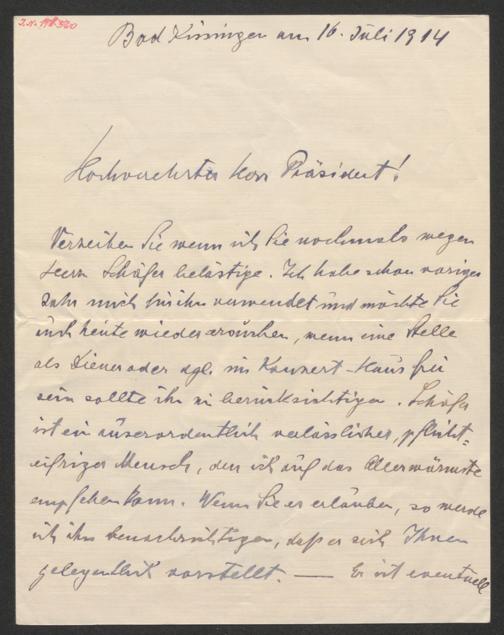 I.N. 198.520
Bad Kissingen am 16. Juli 1914
Hochverehrter Herr Präsident!
Verzeihen Sie wenn ich Sie nochmals wegen
Herrn Schäfer belästige. Ich habe schon voriges
Jahr mich für ihn verwendet und möchte Sie
auch heute wieder ersuchen, wenn eine Stelle
als Diener oder dgl. im Konzert-Haus frei
sein sollte ihn zu berücksichtigen. Schäfer
ist ein ausserordentlich verlässlicher, pflicht=
eifriger Mensch, den ich auf das Allerwärmste
empfehlen kann. Wenn Sie es erlauben, so werde
ich ihn benachrichtigen, daß er sich Ihnen
gelegentlich vorstellt. — Er ist eventuell